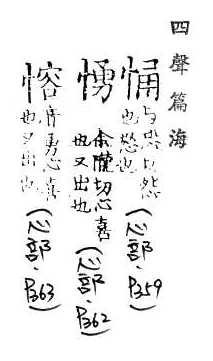 四聲篇海
悀 与恐切 也 也(心部.P359)
愑 余隴切心喜
也又出也(心部.P362)
愹 音勇心喜
也又出也(心部.P363)